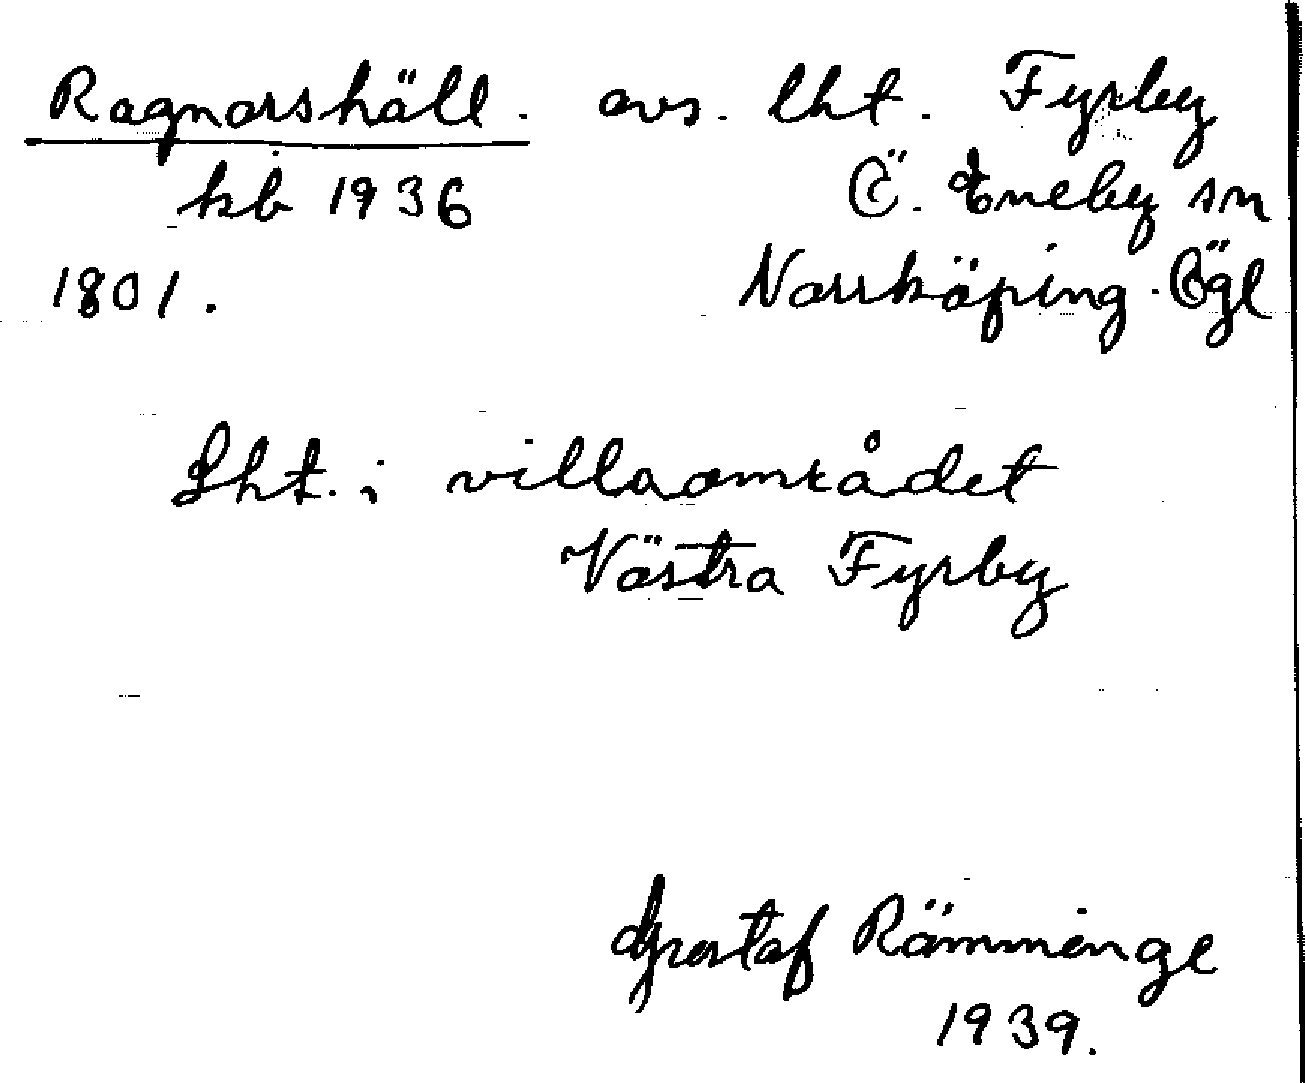 Ragnarshäll. avs. lht. Fyrby
kb 1936 Ö. Eneby sn
1801. Norrköping. Ögl
Lht. i villaområdet
Västra Fyrby
Gustaf Rämminge
1939.